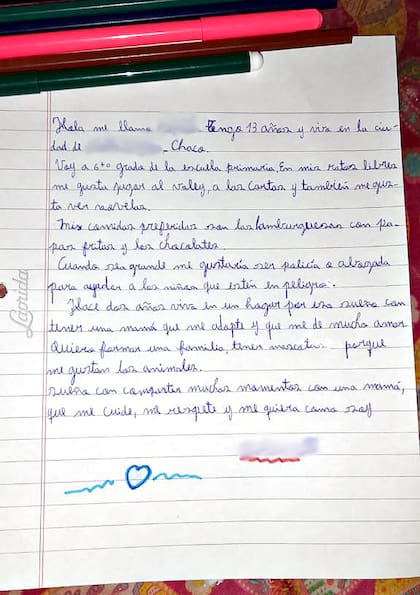 Hola me llamo Tengo 13 años y vivo en la ciu-
dad de - Chaco.
Voy a 6to grado de la escuela primaria. En mis ratos libres
me gusta jugar al voley, a las cartas y también me gus-
ta ver novelas.
Mis comidas preferidas son las hamburguesas con pa-
pas fritas y los chocolates.
Cuando sea grande me gustaría ser policía o abogada
para ayudar a los niños que estén en peligro.
Hace dos años vivo en un hogar por eso sueño con
tener una mamá que me adopte y que me de mucho amor.
Quiero formar una familia, tener mascotas porque
me gustan los animales.
sueño con compartir muchos momentos con una mamá,
que me cuide, me respete y me quiera como soy
Laprida